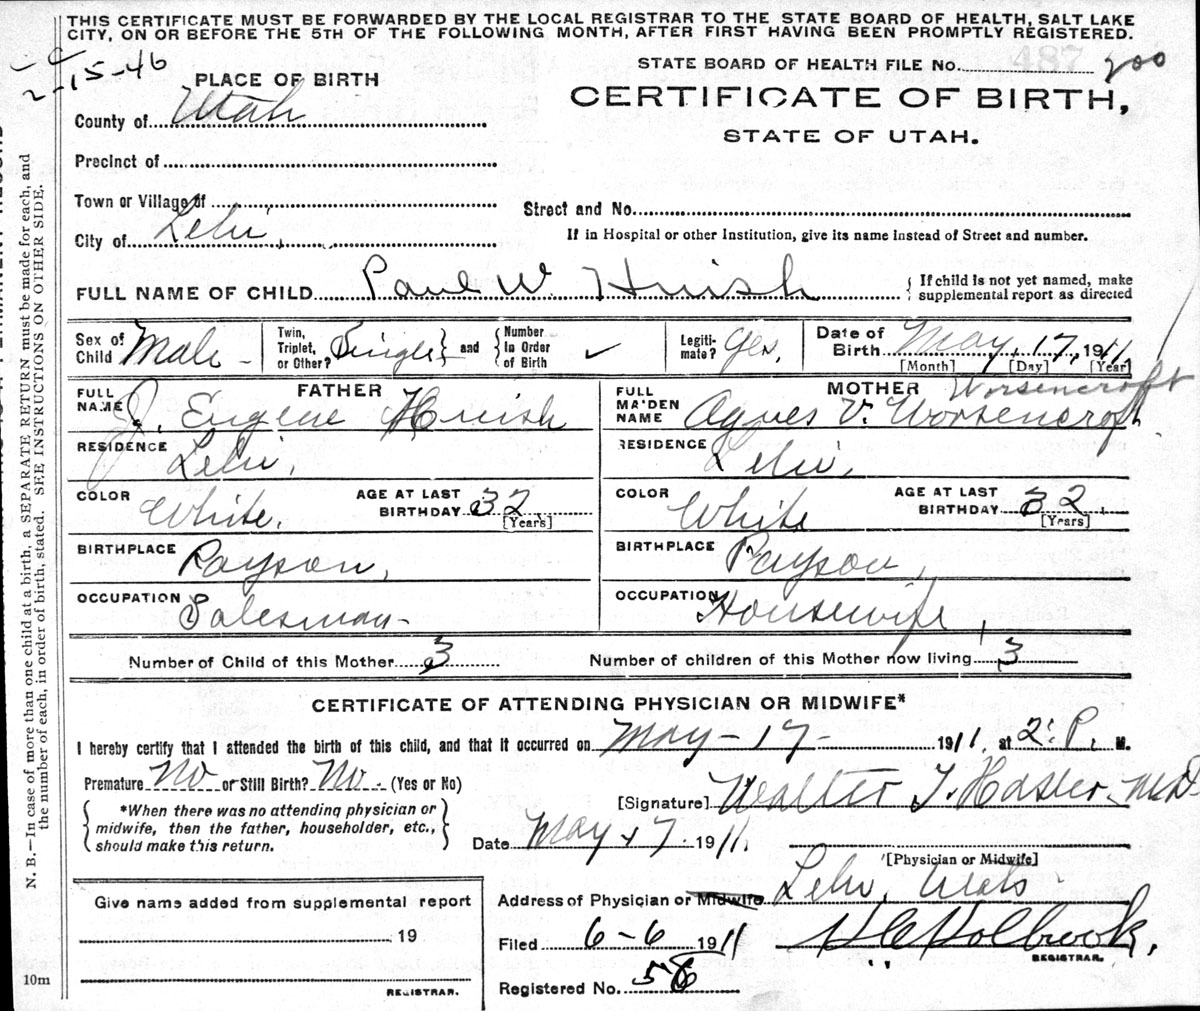 THIS CERTIFICATE MUST BE FORWARDED BY THE LOCAL REGISTRAR TO THE STATE BOARD OF HEALTH, SALT LAKE
CITY, ON OR BEFORE THE 5TH OF THE FOLLOWING MONTH, AFTER FIRST HAVING BEEN PROMPTLY REGISTERED.
2-15-46
PLACE OF BIRTH
STATE BOARD OF HEALTH FILE No. 200
CERTIFICATE OF BIRTH,
STATE OF UTAH.
County of Utah
Precinct of
Town or Village of
Street and No.
City of Lehi,
If in Hospital or other Institution, give its name instead of Street and number.
FULL NAME OF CHILD Paul W. Huish
{ If child is not yet named, make
supplemental report as directed
Sex of Child Male - Twin, Triplet, or Other? Single } and { Number In Order of Birth ✓ Legiti-mate? Yes, Date of Birth May, 17, 1911,
[Month] [Day] [Year]
FATHER
MOTHER Worsencroft
FULL NAME J. Eugene Huish
FULL MAIDEN NAME Agnes V. Worsencroft
RESIDENCE Lehi,
RESIDENCE Lehi,
COLOR White, AGE AT LAST BIRTHDAY 32 [Years]
COLOR White AGE AT LAST BIRTHDAY 32, [Years]
BIRTHPLACE Payson,
BIRTHPLACE Payson,
OCCUPATION Salesman-
OCCUPATION Housewife,
Number of Child of this Mother 3 Number of children of this Mother now living 3
CERTIFICATE OF ATTENDING PHYSICIAN OR MIDWIFE*
I hereby certify that I attended the birth of this child, and that it occurred on May - 17 - 1911, at 2: P. M.
Premature No or Still Birth? No - (Yes or No)
[Signature] Walter T. Hasler, M.D.
{ *When there was no attending physician or
midwife, then the father, householder, etc.,
should make this return. }
Date May 17. 1911.
[Physician or Midwife]
Address of Physician or Midwife Lehi, Utah -
Give name added from supplemental report
19
Filed 6-6 1911 H C Holbrook.
REGISTRAR.
Registered No. 56
REGISTRAR.
10m
N. B.—In case of more than one child at a birth, a SEPARATE RETURN must be made for each, and
the number of each, in order of birth, stated. SEE INSTRUCTIONS ON OTHER SIDE.